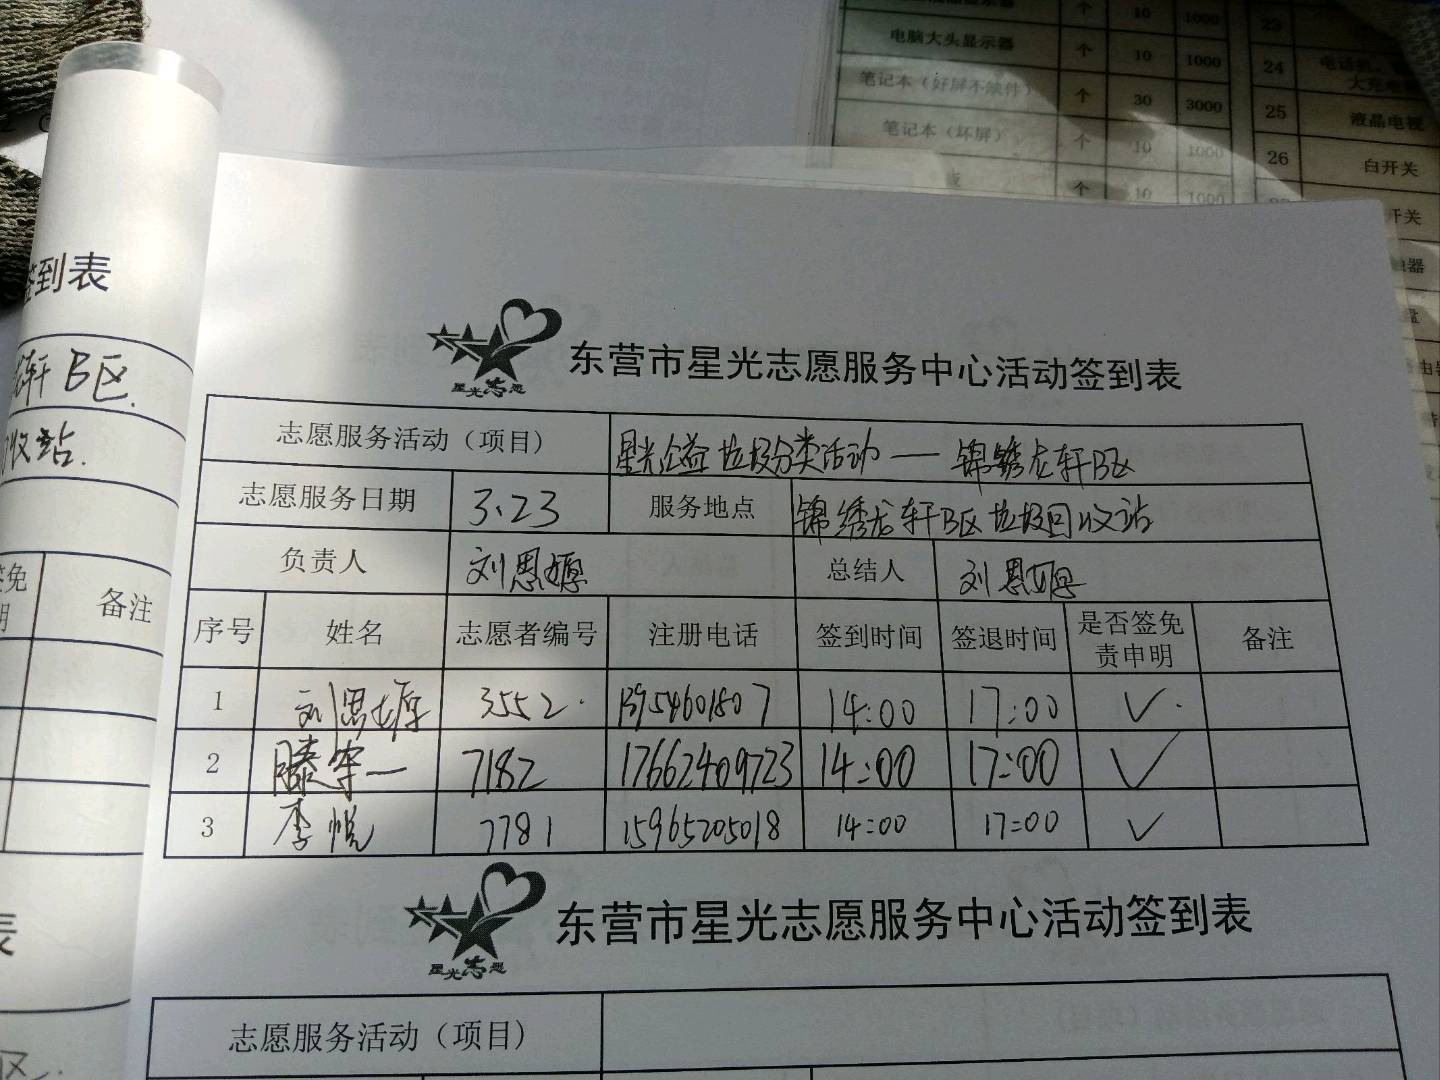 电脑大头显示器 个 10 1000
笔记本（好屏不缺件） 个 30 3000
笔记本（坏屏） 个 10 1000
个 10 1000
23
24
25 液晶电视
26 白开关
开关
签到表
轩B区.
收站.
备注
东营市星光志愿服务中心活动签到表
星光志愿
志愿服务活动（项目） 星光公益垃圾分类活动——锦绣龙轩B区
志愿服务日期 3.23 服务地点 锦绣龙轩B区垃圾回收站
负责人 刘恩嫄 总结人 刘恩嫄
序号 姓名 志愿者编号 注册电话 签到时间 签退时间 是否签免责申明 备注
1 刘恩嫄 3552 13954601807 14:00 17:00 ✓
2 滕宇一 7182 17662409723 14:00 17:00 ✓
3 李悦 7781 15965205018 14:00 17:00 ✓
东营市星光志愿服务中心活动签到表
星光志愿
志愿服务活动（项目）